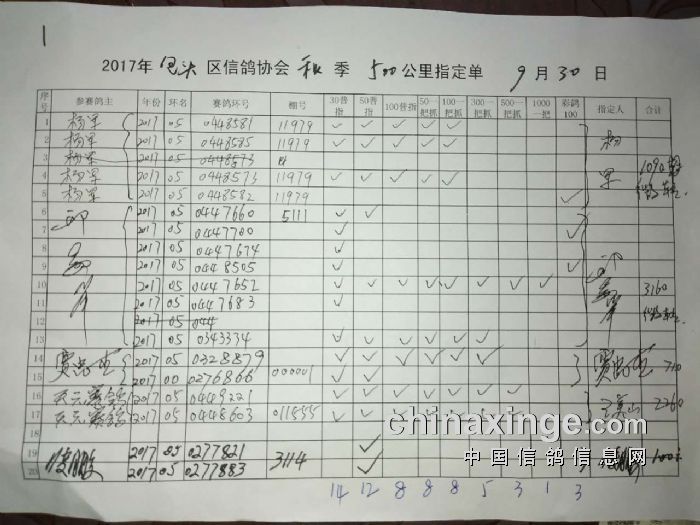 1
2017年 包头 区信鸽协会 秋 季 500 公里指定单 9 月 30 日
序号 参赛鸽主 年份 环名 赛鸽环号 棚号 30普指 50普指 100普指 50一把抓 100一把抓 300一把抓 500一把抓 1000一把 彩鸽100 指定人 合计
1 杨军 2017 05 0448581 11979 ✓ ✓ ✓ ✓ ✓ 杨军
2 杨军 2017 05 0448585 11979 ✓ ✓ ✓ ✓ ✓
3 杨军 2017 05 0448573
4 杨军 2017 05 0448573 11979 ✓ ✓ ✓ ✓ ✓ 1090
5 杨军 2017 05 0448582 11979 ✓
6 2017 05 0447660 5111 ✓ ✓
7 2017 05 0447700 ✓ ✓
8 2017 05 0447674 ✓
9 2017 05 0448505 ✓ ✓
10 2017 05 0447652 ✓ ✓ ✓ ✓ ✓ ✓ ✓ ✓ 3160
11 2017 05 0447683 ✓
12 2017 05 044
13 2017 05 0343334 ✓ ✓ ✓ ✓ ✓ ✓
14 2017 05 0328879 ✓ ✓ ✓ ✓ ✓ ✓ 710
15 2017 00 0276866 000001 ✓ ✓
16 天元赛鸽 2017 05 0449221 ✓ ✓ ✓ ✓ ✓ ✓ ✓ 2260
17 天元赛鸽 2017 05 0448603 011555
18
19 2017 05 0277821 3114 ✓
20 2017 05 0277883 ✓
14 12 8 8 8 5 3 1 3
chinaxinge.com
中国信鸽信息网